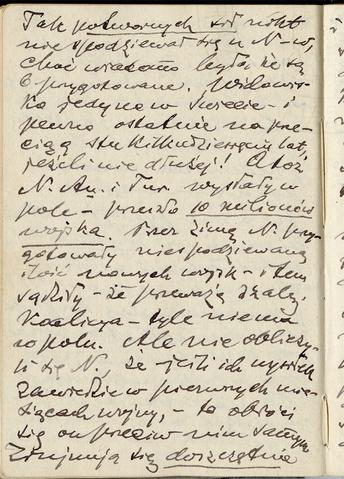 Tak potwornych sił nikt
nie spodziewał się u N-ów,
choć wiadomo było że są
b. przygotowane. Widowis-
ko jedyne w świecie - i
pewno ostatnie na prze-
ciąg stu kilkudziesięciu lat,
jeżeli nie dłużej! Otóż
N. Au. i Tur. wysłały w
pole - przeszło 10 milionów
wojska. Przez zimę N. przy-
gotowały niespodziewaną
ilość nowych wojsk - i tem
sądziły - że przeważą szalę.
Koalicja - tyle nie ma
w polu. Ale nie obliczy-
li się N., że jeśli ich wysiłek
zawiedzie w pierwszych mie-
siącach wojny, - to obróci
się on przeciw nim samym
Zrujnują się doszczętnie